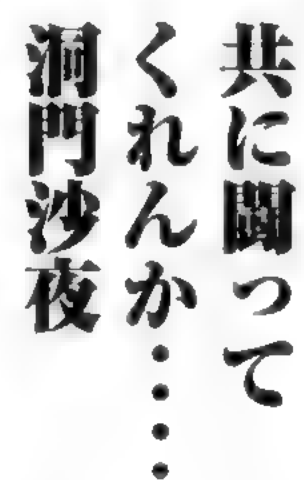 共に闘って
くれんか‥‥
洞門沙夜